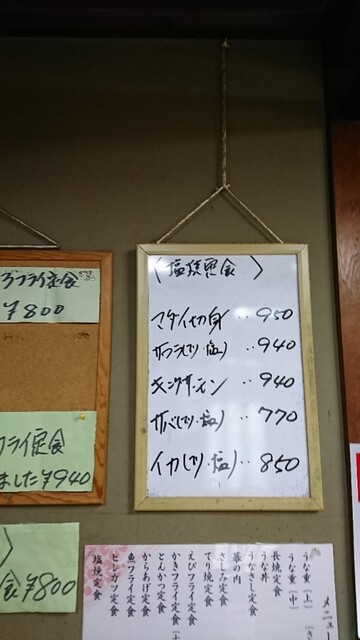 〈塩焼定食〉
マダイ切身‥950
サワラ(てり・塩)‥940
キングサーモン‥940
サバ(てり・塩)‥770
イカ(てり・塩)‥850
フライ定食
¥800
フライ定食
ました¥940
食¥800
メニュー
うな重(上)
うな重(中)
長焼定食
うな丼
うなぎ定食
幕の内
さしみ定食
てり焼定食
えびフライ定食
かきフライ定食
とんかつ定食
からあげ定食
魚フライ定食
ヒレカツ定食
塩焼定食